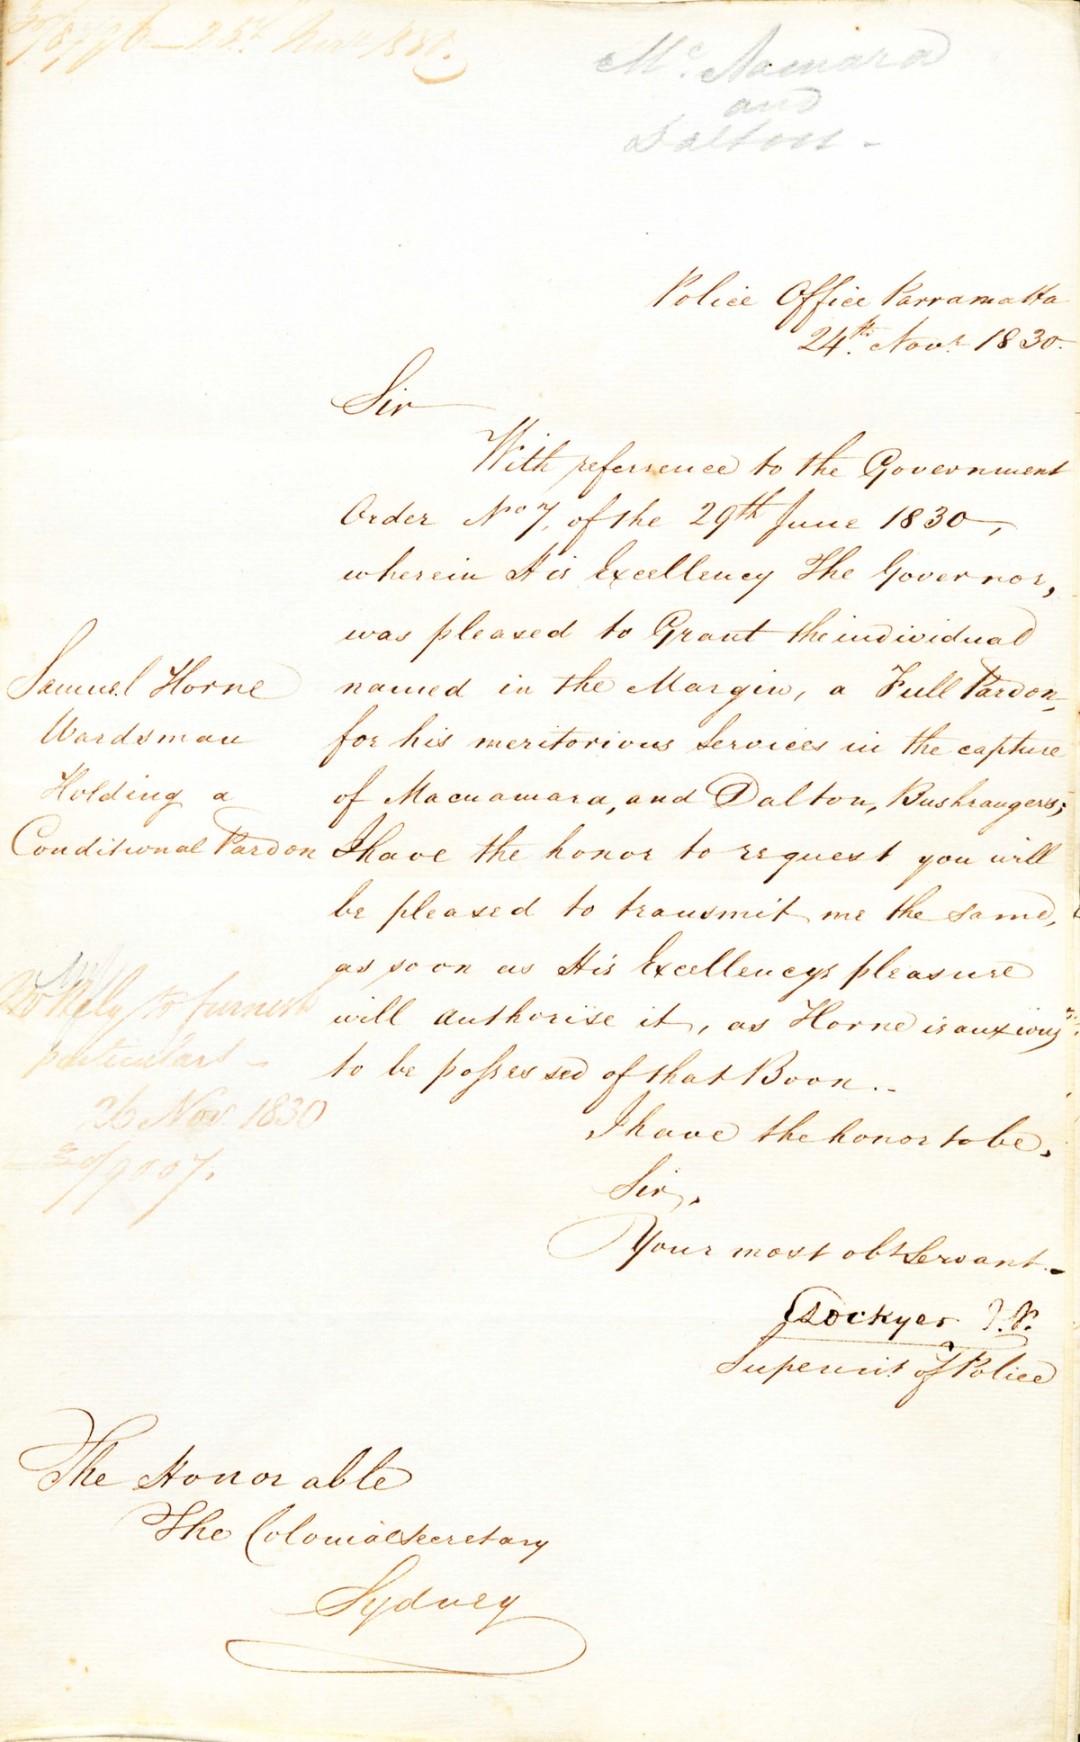 25th Novr 1830.
Mc.Namara
and
Dalton -
Police Office Parramatta
24th. Novr. 1830.
Sir
With reference to the Government
Order No 7, of the 29th June 1830,
wherein His Excellency The Governor,
was pleased to Grant the individual
named in the Margin, a Full Pardon,
for his meritorious Services in the capture
of Macnamara, and Dalton, Bushrangers;
I have the honor to request you will
be pleased to transmit me the same,
as soon as His Excellencys pleasure
will authorise it, as Horne is anxious
to be possessed of that Boon..
I have the honor to be,
Sir,
Your most obt Servant.
Lockyer J.P.
Superint of Police
Samuel Horne
Wardsman
Holding a
Conditional Pardon
to furnish
particulars -
26 Nov 1830
30/9007.
The Honorable
The Colonial Secretary
Sydney